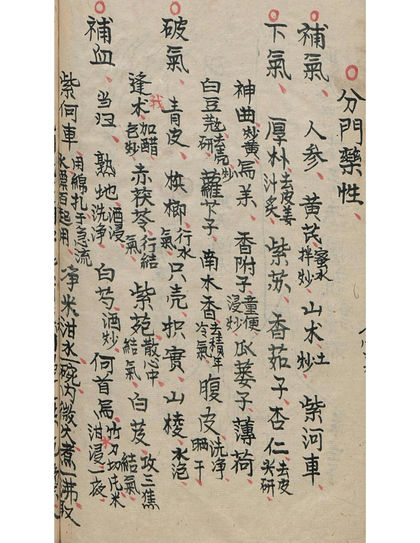 分門藥性
補氣 人参 黄芪蜜水拌炒 山术土炒 紫河車
下氣 厚朴去皮姜汁炙 紫苏 香茹子 杏仁去皮尖研
神曲炒黄 烏 香附子童便浸炒 瓜蒌子 薄荷
白豆蔻去壳研炒 蘿卜子 南木香去積年冷氣 腹皮洗净晒干
破氣 青皮 梹榔行水 只壳 枳實 山棱水泡
蓬术加醋炒 赤茯苓行結氣 紫苑散心中結氣 白芨攻三焦結氣
補血 当归 熟地酒浸洗净 白芍酒炒 何首烏竹刀切片米泔浸一夜
紫何車用綿扎于急流水漂百起用 净米泔水一碗內微火煮一沸取